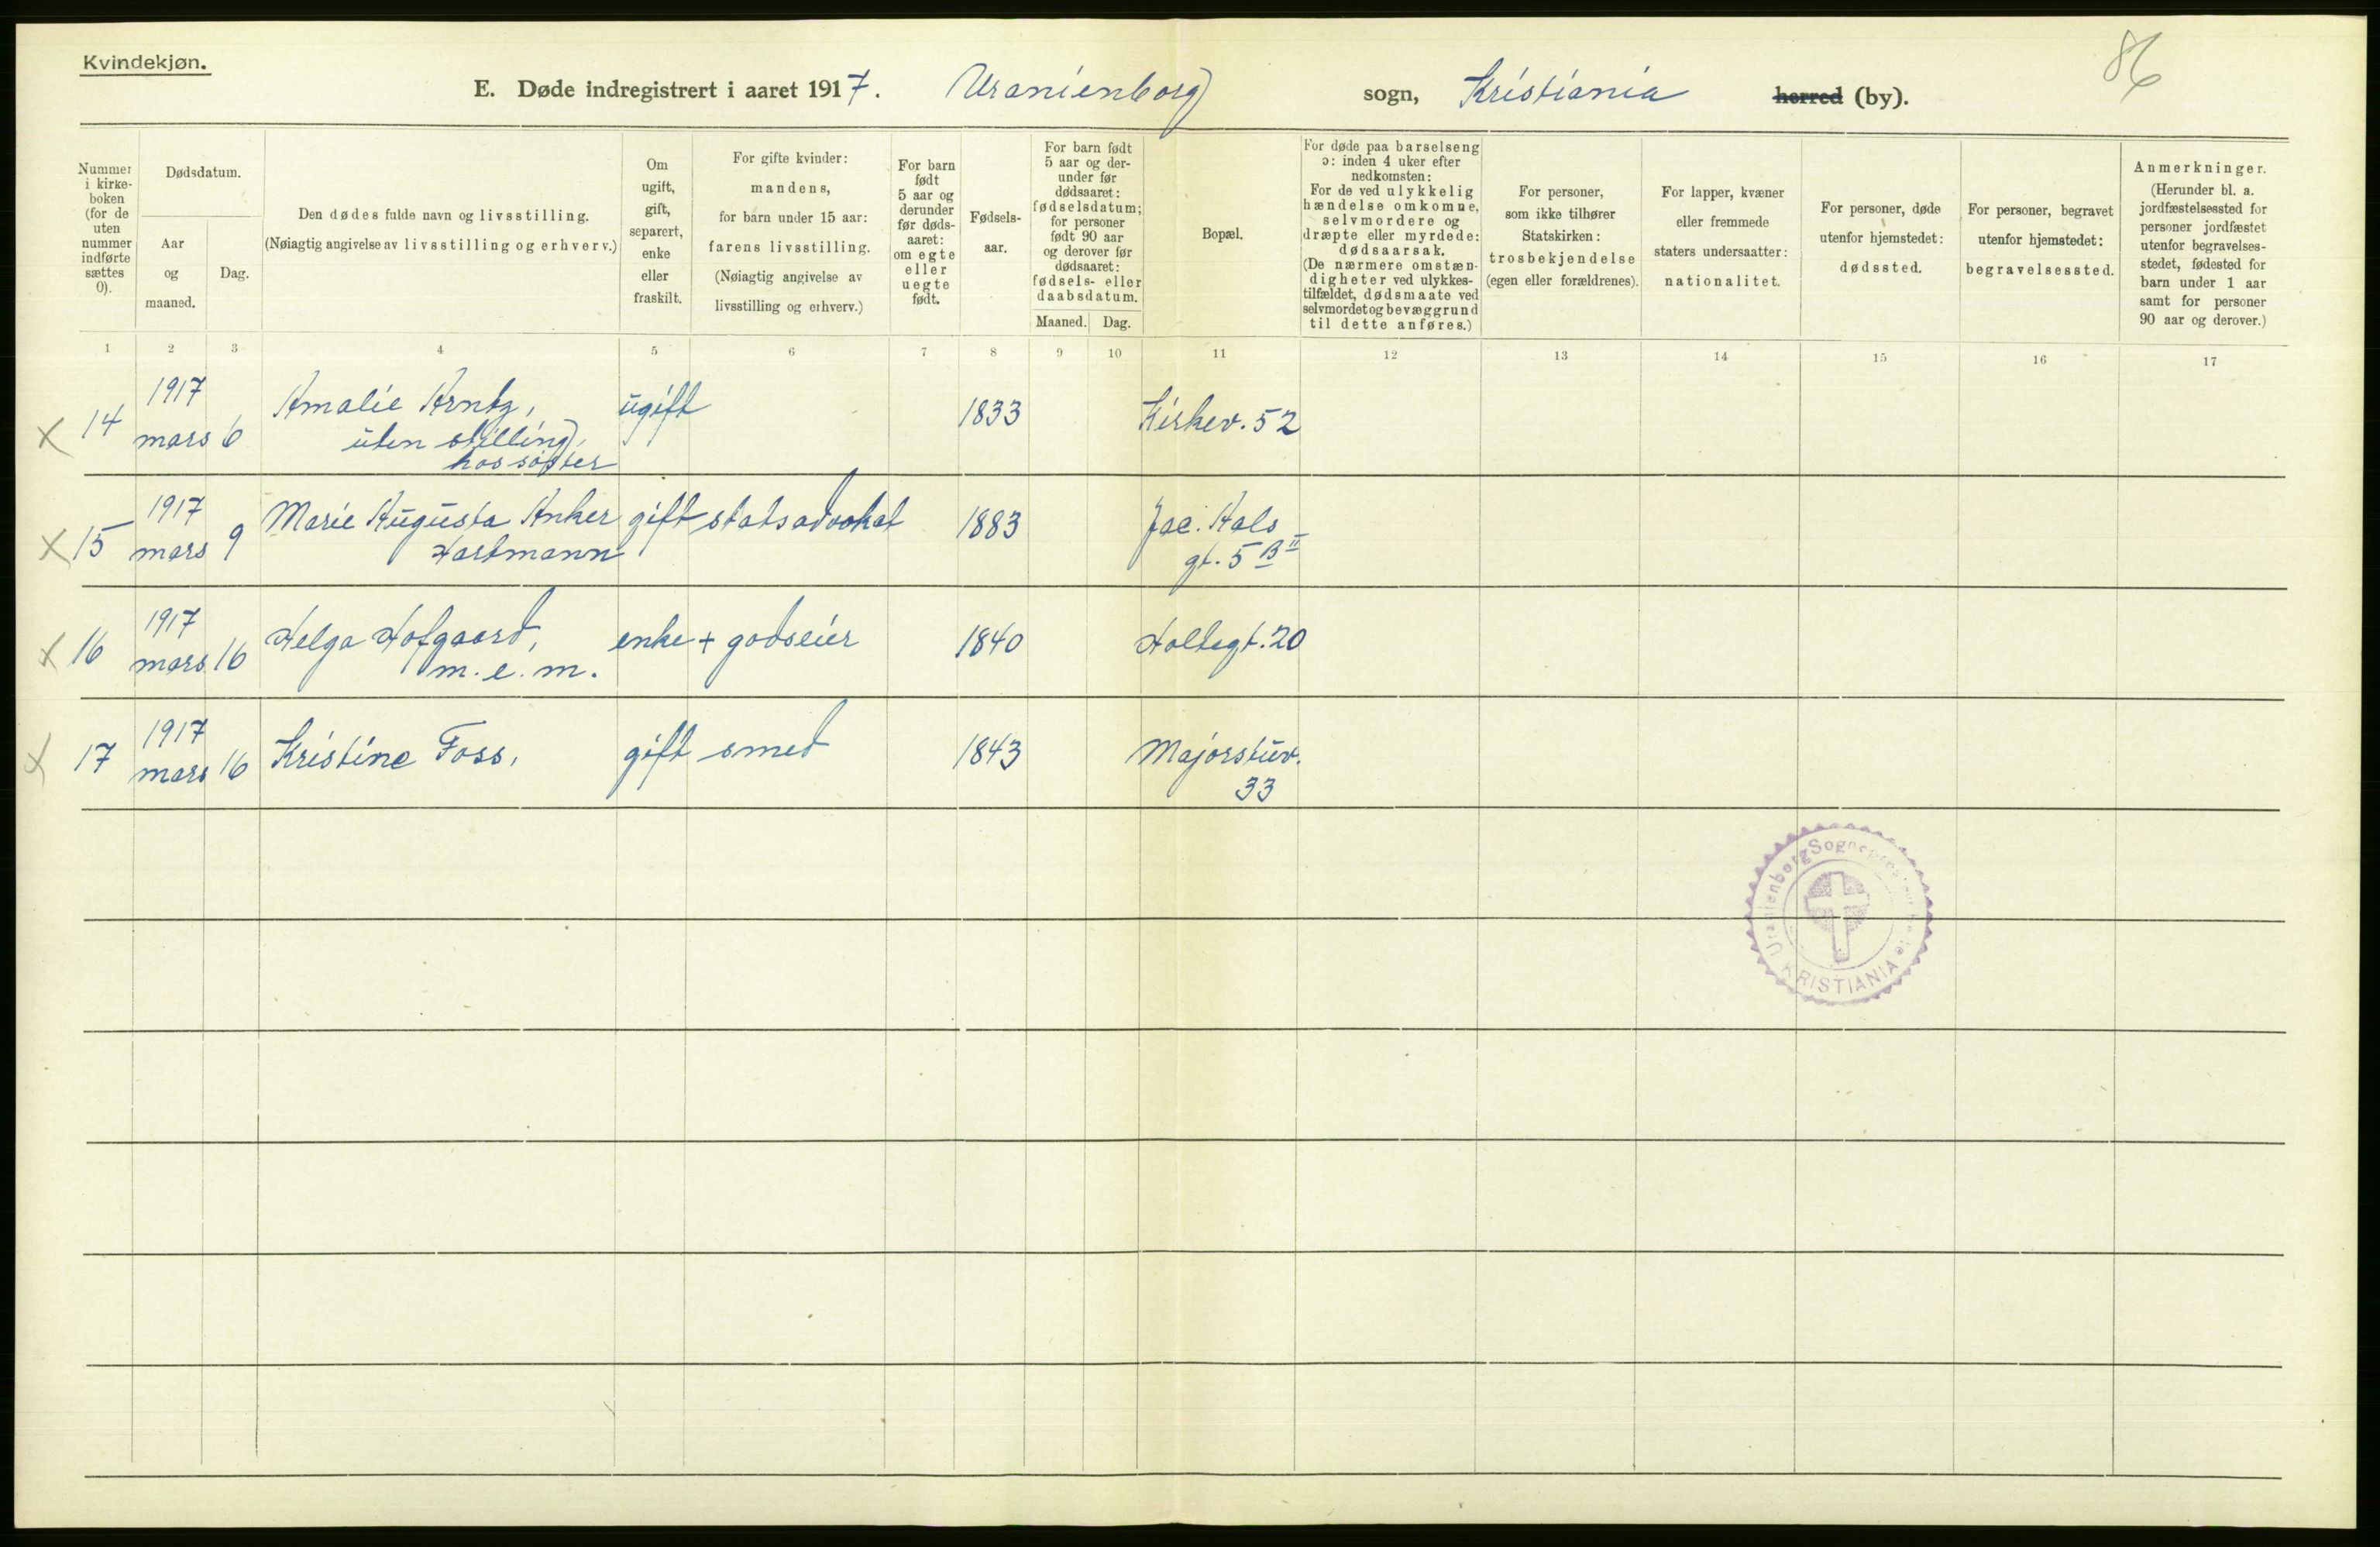 Kvindekjøn.
86
E. Døde indregistrert i aaret 1917. Uranienborg sogn, Kristiania herred (by).
Nummer
i kirke-
boken
(for de
uten
nummer
indførte
sættes
0).
Dødsdatum.
Aar
og
maaned.
Dag.
Den dødes fulde navn og livsstilling.
(Nøiagtig angivelse av livsstilling og erhverv.)
Om
ugift,
gift,
separert,
enke
eller
fraskilt.
For gifte kvinder:
mandens,
for barn under 15 aar:
farens livsstilling.
(Nøiagtig angivelse av
livsstilling og erhverv.)
For barn
født
5 aar og
derunder
før døds-
aaret:
om egte
eller
uegte
født.
Fødsels-
aar.
For barn født
5 aar og der-
under før
dødsaaret:
fødselsdatum;
for personer
født 90 aar
og derover før
dødsaaret:
fødsels- eller
daabsdatum.
Maaned.
Dag.
Bopæl.
For døde paa barselseng
ɔ: inden 4 uker efter
nedkomsten:
For de ved ulykkelig
hændelse omkomne,
selvmordere og
dræpte eller myrdede:
dødsaarsak.
(De nærmere omstæn-
digheter ved ulykkes-
tilfældet, dødsmaate ved
selvmordet og bevæggrund
til dette anføres.)
For personer,
som ikke tilhører
Statskirken:
trosbekjendelse
(egen eller forældrenes).
For lapper, kvæner
eller fremmede
staters undersaatter:
nationalitet.
For personer, døde
utenfor hjemstedet:
dødssted.
For personer, begravet
utenfor hjemstedet:
begravelsessted.
Anmerkninger.
(Herunder bl. a.
jordfæstelsessted for
personer jordfæstet
utenfor begravelses-
stedet, fødested for
barn under 1 aar
samt for personer
90 aar og derover.)
1 2 3 4 5 6 7 8 9 10 11 12 13 14 15 16 17
x 14 1917 mars 6 Amalie Arntz, ugift 1833 Kirkev. 52
uten stilling,
hos søster
x 15 1917 mars 9 Marie Augusta Anker gift statsadvokat 1883 Jac. Aals
Hartmann gt. 5 B II
x 16 1917 mars 16 Helga Hofgaard, enke + godseier 1840 Holtegt. 20
m. e. m.
x 17 1917 mars 16 Kristine Foss, gift smed 1843 Majorstuv.
33
Uranienborg Sogneprestembede
KRISTIANIA